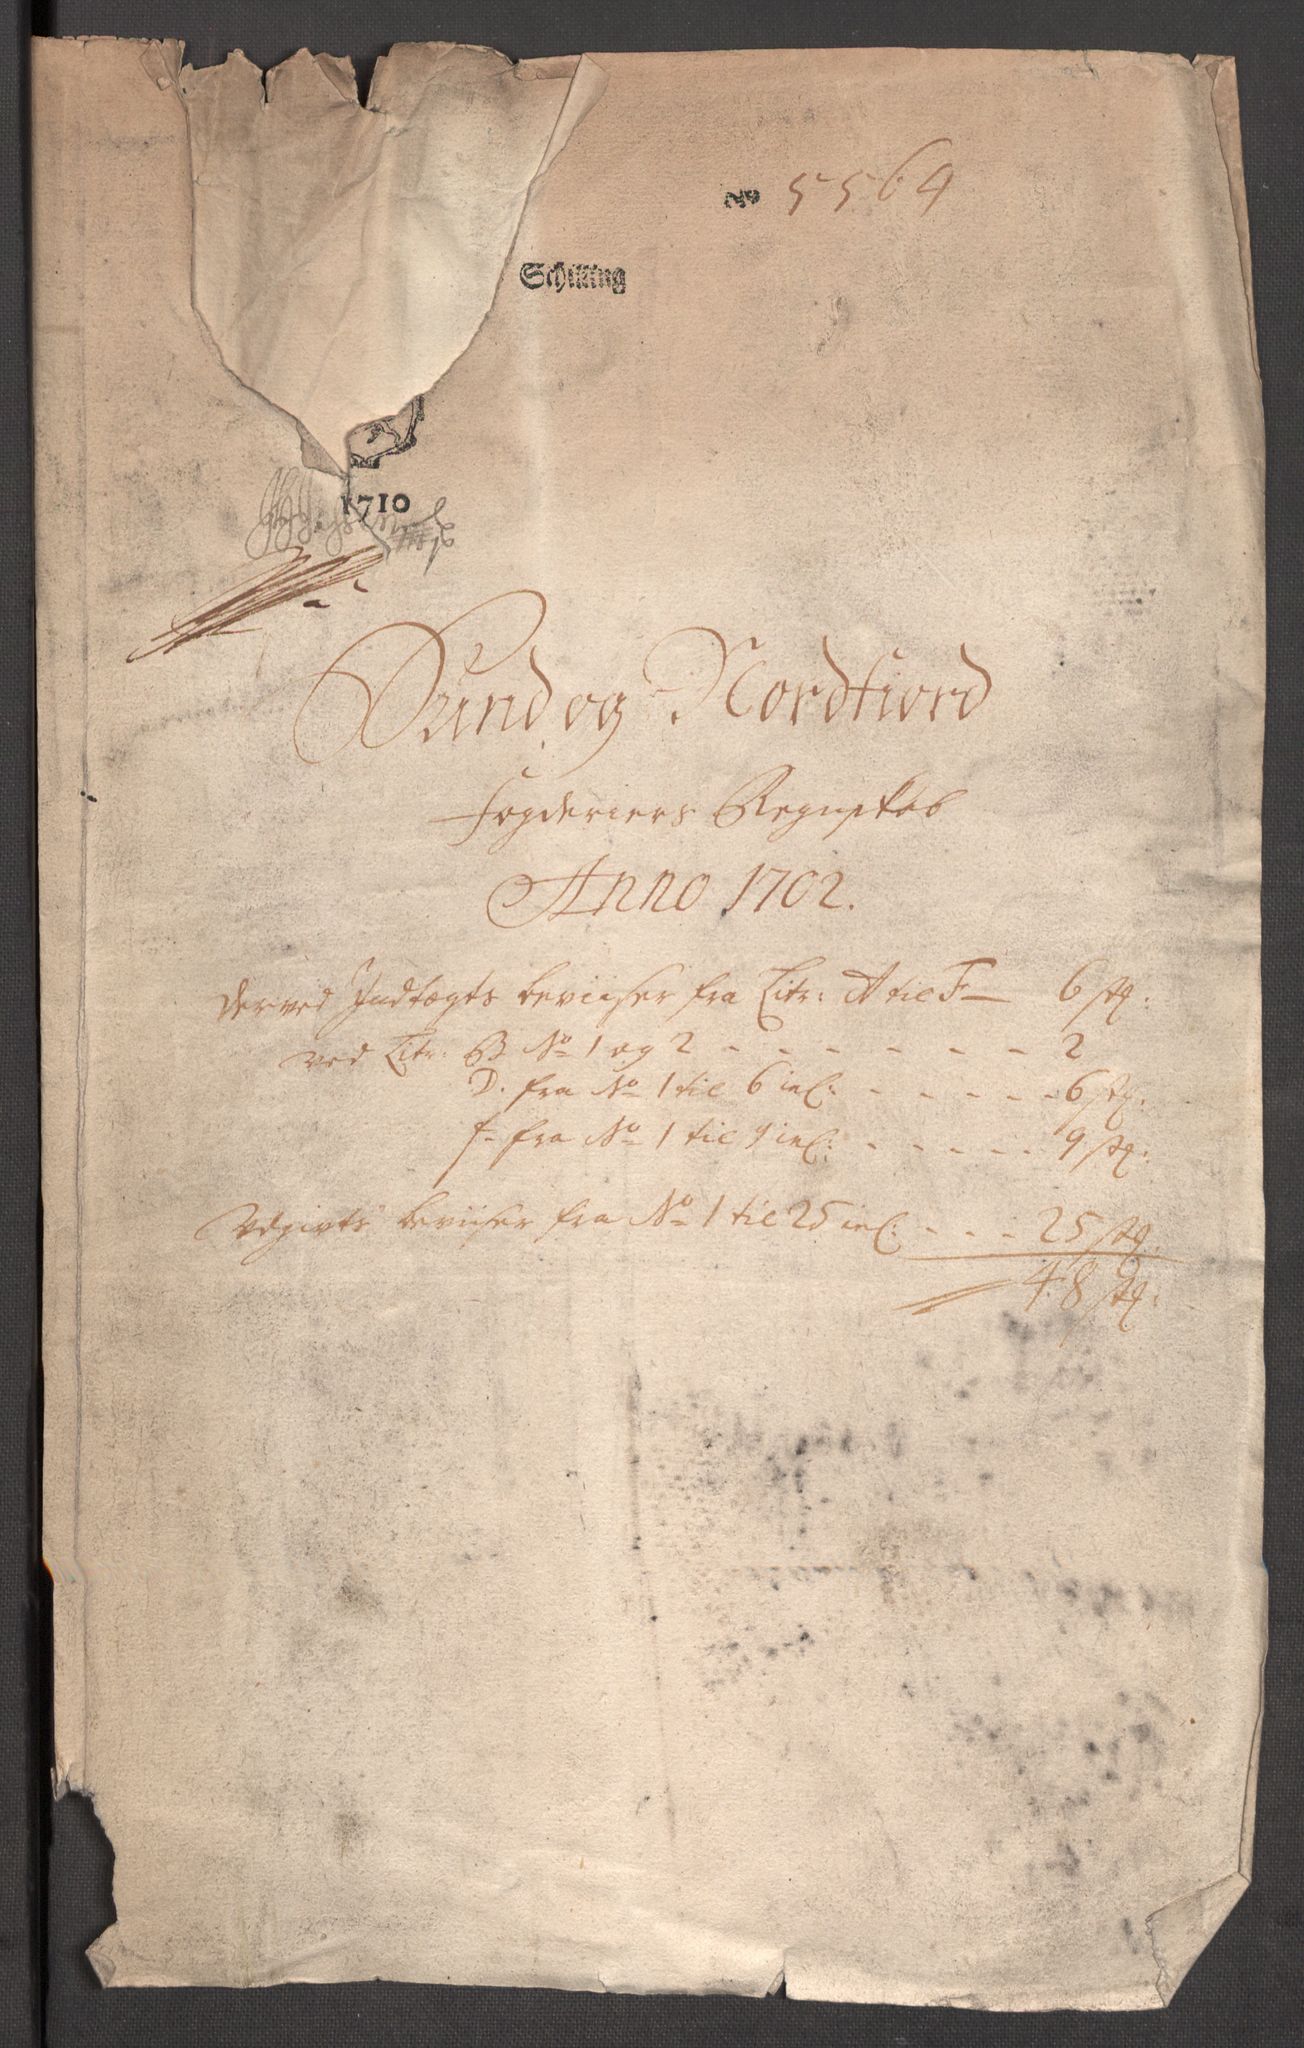 No 5564
Schilling
1710
Sund og Nordfiord
Fogderiers Regnskab
Anno 1702.
derved Indtægts beviiser fra Litr: A til F — 6 stk:
ved Litr: B No 1 og 2 - - - - - - - 2
D. fra No 1 til 6 incl: - - - - - 6 stk:
F. fra No 1 til 9 incl: - - - - - 9 stk:
Udgivts beviiser fra No 1 til 25 incl: - - - 25 stk.
48 stk: